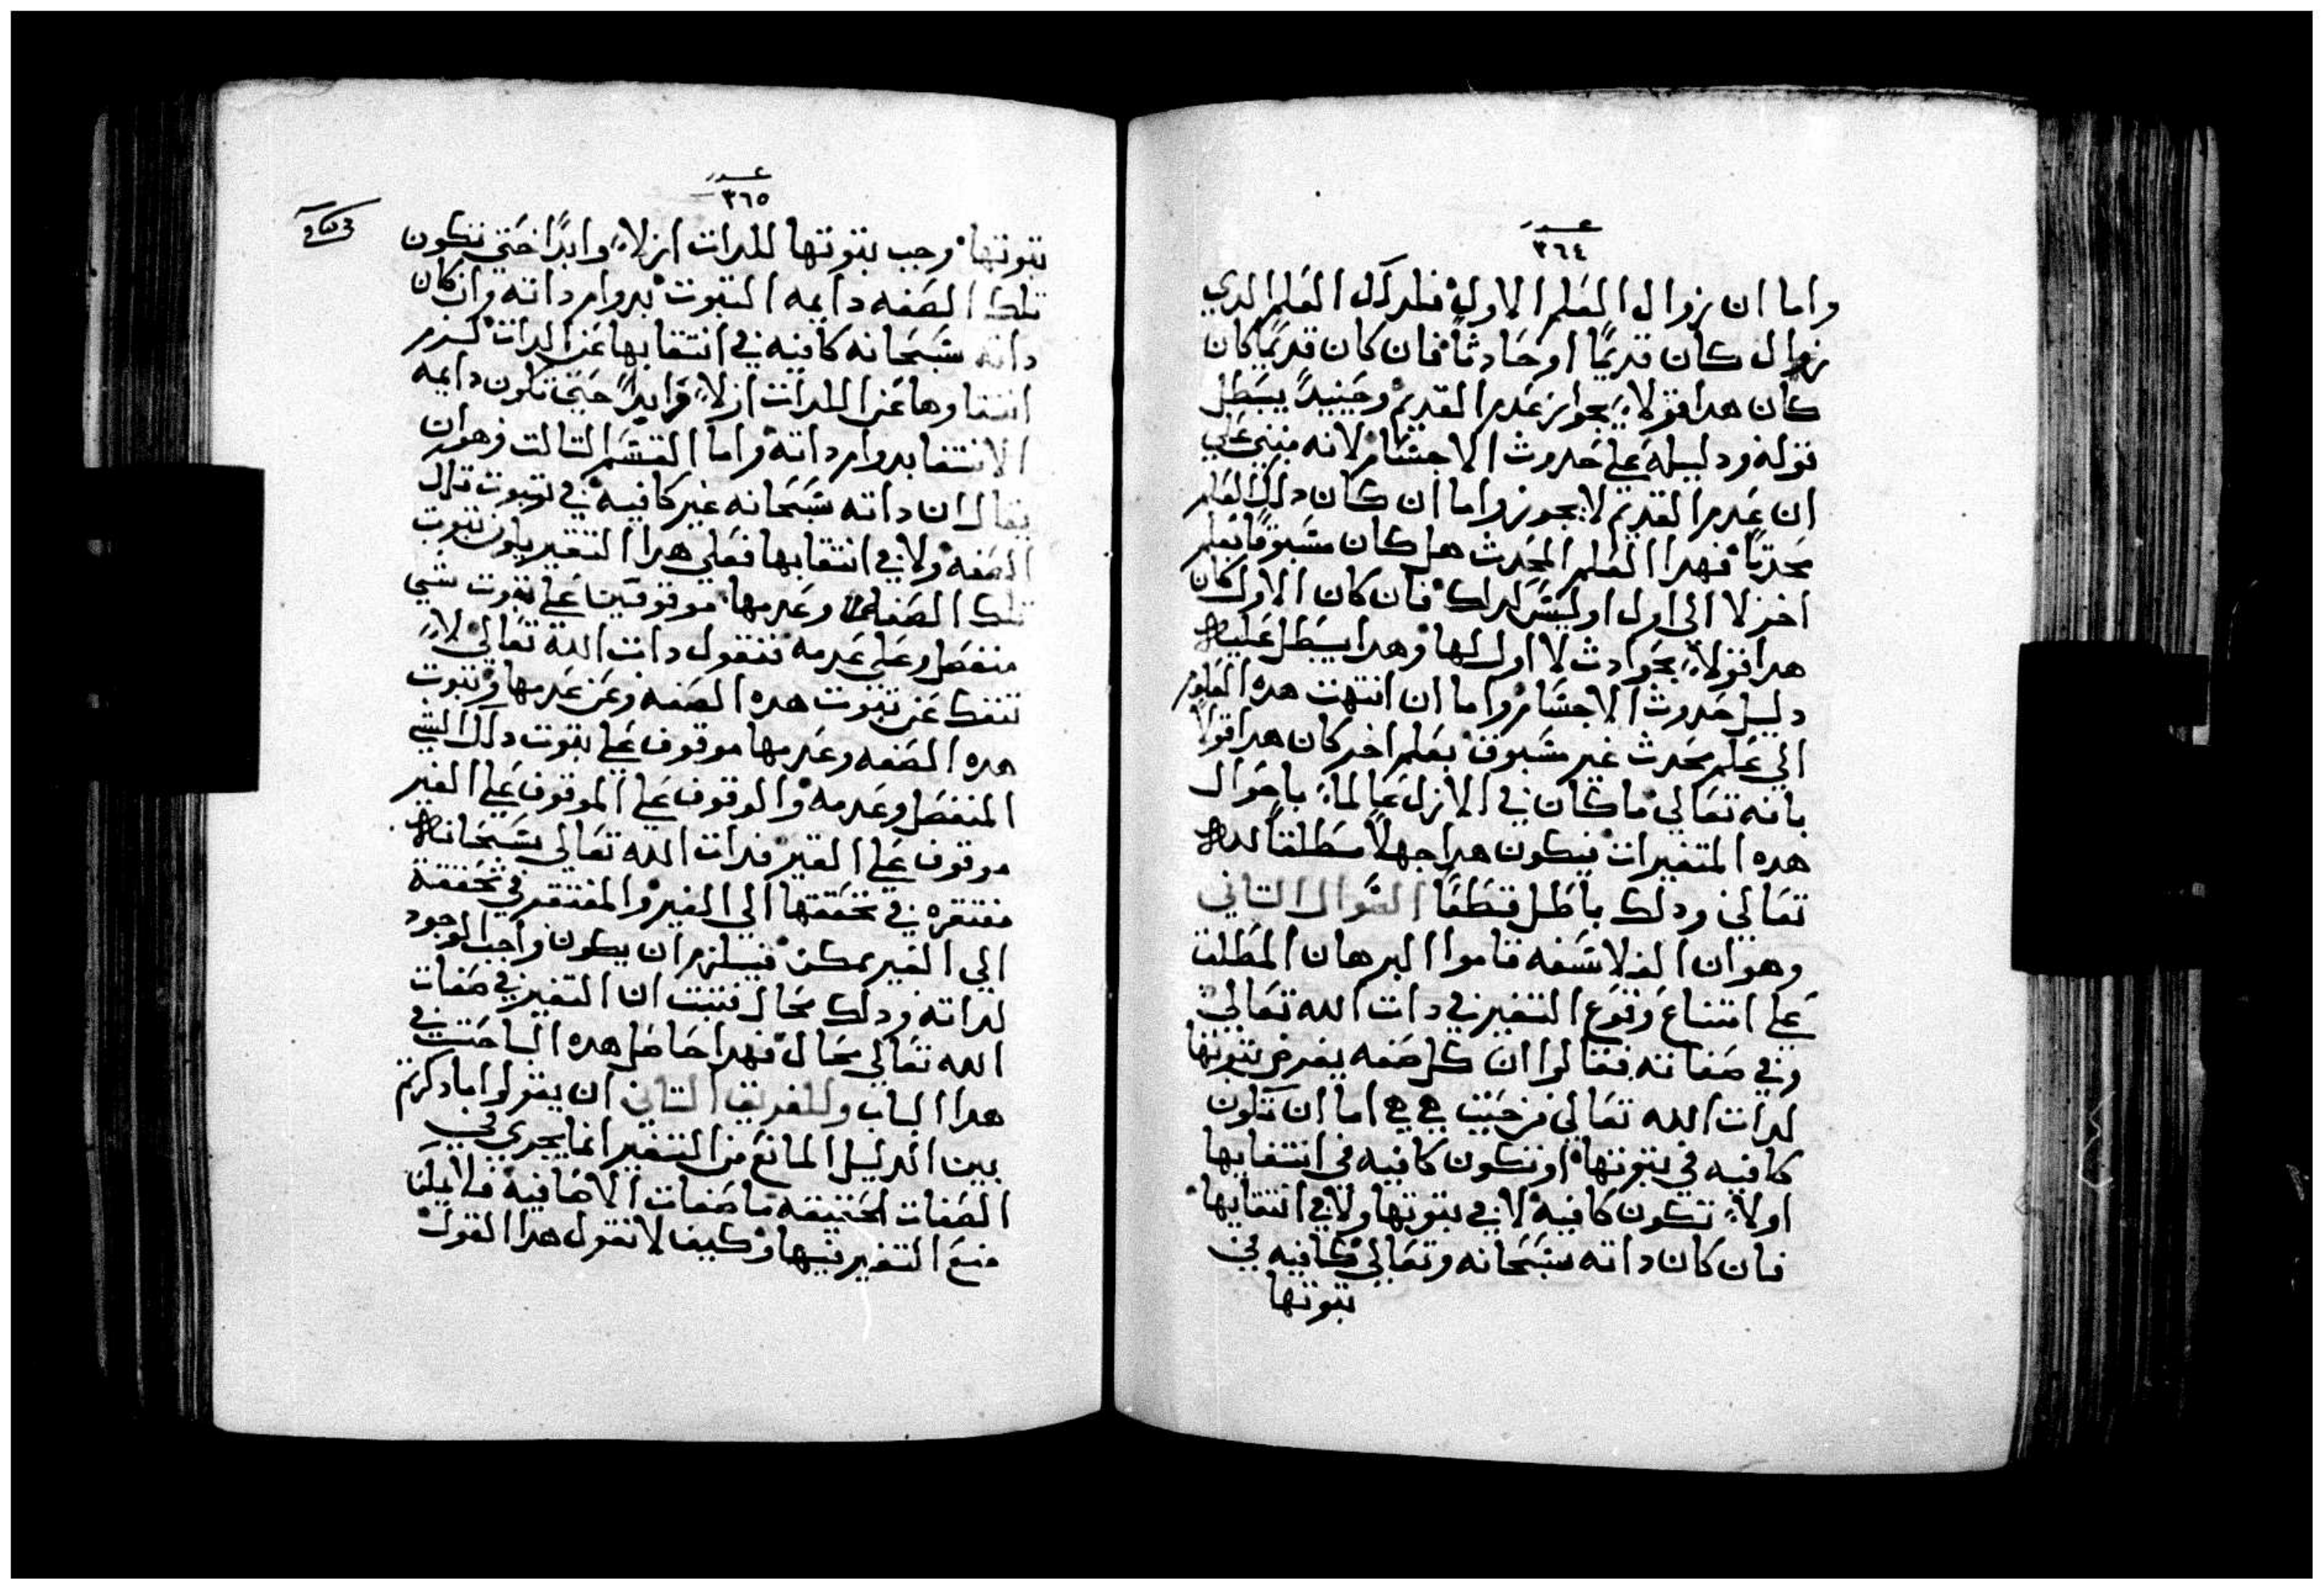 عدد
٣٦٤
واما ان زوال العلم الاول فلدلك العلم الدي
زوال كان قديمًا او حادثًا فان كان قديمًا كان
كان هدا قولاً بجواز عدم القديم وحينيدً يبطل
قوله ودليله علي حدوث الاجسام لانه مبني علي
ان عدم القديم لا يجوز واما ان كان دلك العلم
محدثًا فهدا العلم المحدث هل كان مسبوقًا بعلم
اخر لا الي اول او ليس كداك فان كان الاول كان
هدا قولاً بحوادث لا اول لها وهدا يبطل عليه
دليل حدوث الاجسام واما ان انتهت هده العلوم
الي علم محدث غير مسبوق بعلم اخر كان هدا قولاً
بانه تعالي ما كان في الازل عالماً باحوال
هده المتغيرات فيكون هدا جهلاً مطلقاً لله
تعالي ودلك باطل قطعًا السوال التاني
وهو ان الفلاسفه قاموا البرهان المطلق
علي امتناع وقوع التغير في دات الله تعالي
وفي صفاته فقالوا ان كل صفه يفرض تبوتها
لدات الله تعالي من حيت هي هي اما ان تكون
كافيه في تبوتها او تكون كافيه في انتفايها
اولاً تكون كافيه لا في تبوتها ولا في انتفايها
فان كان داته سبحانه وتعالي كافيه في
تبوتها
عدد
٣٦٥
تبوتها وجب تبوتها للدات ازلاً وابدًا حتي تكون
تلك الصفه دايمه التبوت بدوام داته وان كان
داته سبحانه كافيه في انتفايها عن الدات لزم
انتفاوها عن الدات ازلاً وابداً حتي تكون دايمه
الانتفا بدوام داته واما القسم التالت وهو ان
يقال ان داته سبحانه غير كافيه في تبوت تلك
الصفه ولا في انتفايها فعلي هدا التقدير يكون تبوت
تلك الصفه وعدمها موقوفين علي تبوت شي
منفصل وعلي عدمه فنقول دات الله تعالي لاً
تنفك عن تبوت هده الصفه وعن عدمها وتبوت
هده الصفه وعدمها موقوف علي تبوت دلك الشي
المنفصل وعدمه والوقوف علي الموقوف علي الغير
موقوف علي الغير فدات الله تعالي سبحانه
مفتقره في تحققها الي الغير والمفتقر في تحققه
الي الغير ممكن فيلزم ان يكون واجب الوجود
لداته ودلك محال فتبت ان التغير في صفات
الله تعالي محال فهدا حاصل هده المباحت في
هدا الباب وللفريق التاني ان يقولوا ما دكرتم
بين الدليل المانع من التغير انما يجري في
الصفات الحقيقه فاصفات الاضافيه فلا يمكن
منع التغير فيها وكيف لا نقول هدا القول